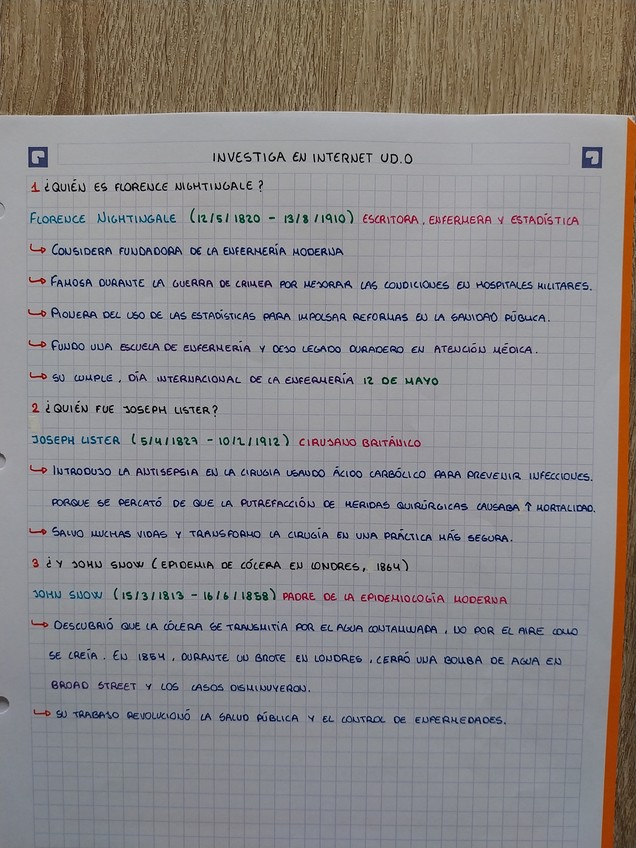 INVESTIGA EN INTERNET UD.0
1 ¿QUIÉN ES FLORENCE NIGHTINGALE?
FLORENCE NIGHTINGALE (12/5/1820 - 13/8/1910) ESCRITORA, ENFERMERA Y ESTADÍSTICA
↪ CONSIDERA FUNDADORA DE LA ENFERMERÍA MODERNA
↪ FAMOSA DURANTE LA GUERRA DE CRIMEA POR MEJORAR LAS CONDICIONES EN HOSPITALES MILITARES.
↪ PIONERA DEL USO DE LAS ESTADÍSTICAS PARA IMPULSAR REFORMAS EN LA SANIDAD PÚBLICA.
↪ FUNDO UNA ESCUELA DE ENFERMERÍA Y DEJO LEGADO DURADERO EN ATENCIÓN MÉDICA.
↪ SU CUMPLE, DÍA INTERNACIONAL DE LA ENFERMERÍA 12 DE MAYO
2 ¿QUIÉN FUE JOSEPH LISTER?
JOSEPH LISTER (5/4/1827 - 10/2/1912) CIRUJANO BRITÁNICO
↪ INTRODUJO LA ANTISEPSIA EN LA CIRUGIA USANDO ÁCIDO CARBÓLICO PARA PREVENIR INFECCIONES.
PORQUE SE PERCATÓ DE QUE LA PUTREFACCIÓN DE HERIDAS QUIRÚRGICAS CAUSABA ↑ MORTALIDAD.
↪ SALVO MUCHAS VIDAS Y TRANSFORMO LA CIRUGÍA EN UNA PRÁCTICA MÁS SEGURA.
3 ¿Y JOHN SNOW (EPIDEMIA DE CÓLERA EN LONDRES, 1864)
JOHN SNOW (15/3/1813 - 16/6/1858) PADRE DE LA EPIDEMIOLOGÍA MODERNA
↪ DESCUBRIÓ QUE LA CÓLERA SE TRANSMITIA POR EL AGUA CONTAMINADA, NO POR EL AIRE COMO
SE CREÍA. EN 1854, DURANTE UN BROTE EN LONDRES, CERRÓ UNA BOMBA DE AGUA EN
BROAD STREET Y LOS CASOS DISMINUYERON.
↪ SU TRABAJO REVOLUCIONÓ LA SALUD PÚBLICA Y EL CONTROL DE ENFERMEDADES.